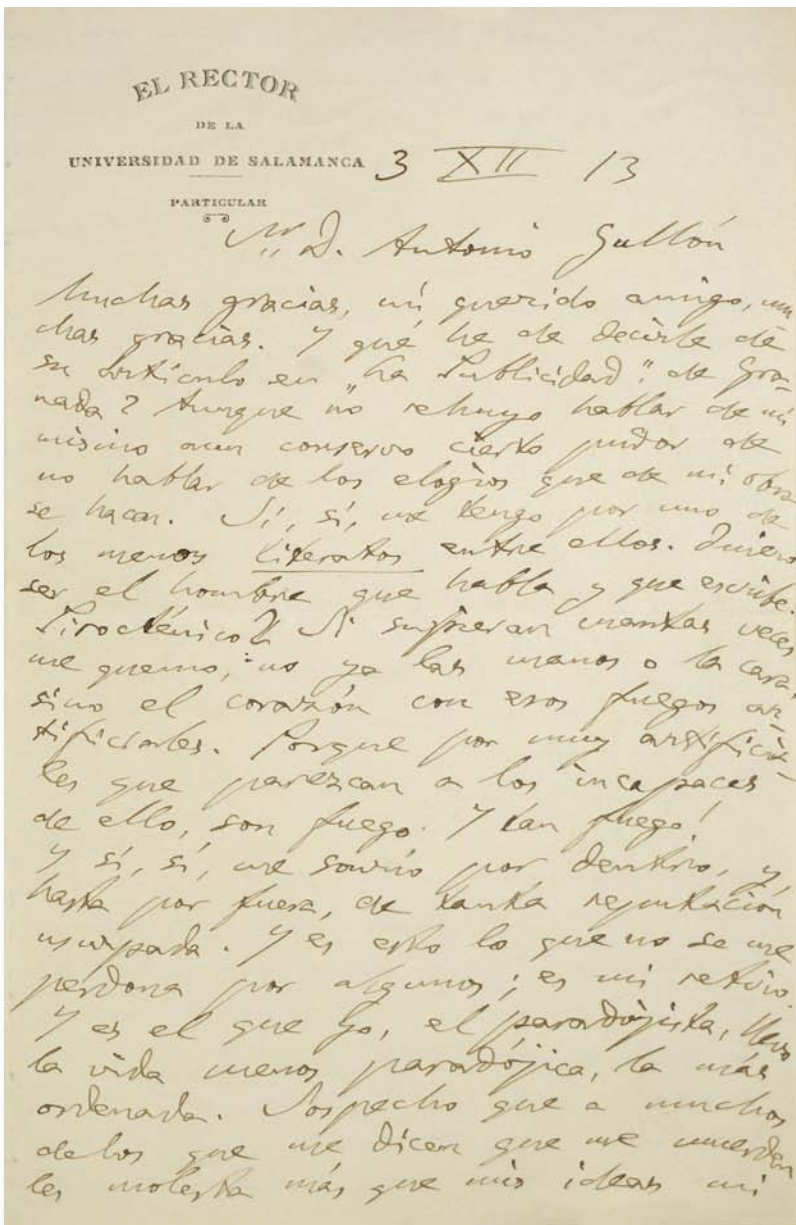 EL RECTOR
DE LA
UNIVERSIDAD DE SALAMANCA 3 XII 13
PARTICULAR
Sr. D. Antonio Gullón
Muchas gracias, mi querido amigo, mu
chas gracias. Y qué he de decirle de
su artículo en "La Publicidad" de Gra-
nada? Aunque no rehuyo hablar de mí
mismo aun conservo cierto pudor de
no hablar de los elogios que de mi obra
se hacen. Sí, sí, me tengo por uno de
los menos literatos entre ellos. Quiero
ser el hombre que habla y que escribe.
Pirotécnico? Si supieran cuantas veces
me quemo, no ya las manos o la cara,
sino el corazón con esos fuegos ar-
tificiales. Porque por muy artificia-
les que parezcan a los incapaces
de ello, son fuego. Y tan fuego!
Y sí, sí, me sonrío por dentro, y
hasta por fuera, de tanta reputación
usurpada. Y es esto lo que no se me
perdona por algunos; es mi retiro.
Y es el que yo, el paradojista, llevo
la vida menos paradójica, la más
ordenada. Sospecho que a muchos
de los que me dicen que me muerden
les molesta más que mis ideas mi